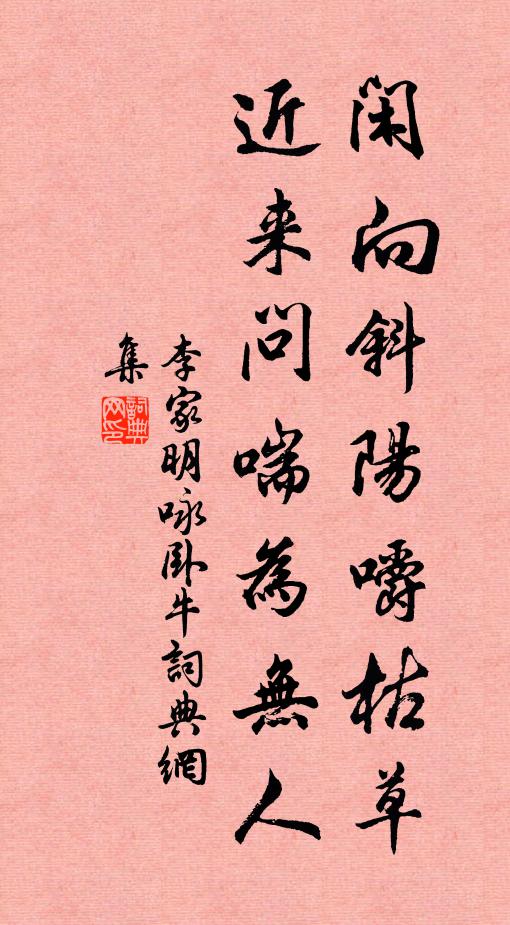 閑向斜陽嚼枯草
近来問喘為無人
李家明咏臥牛詞典網
集
詞典網印